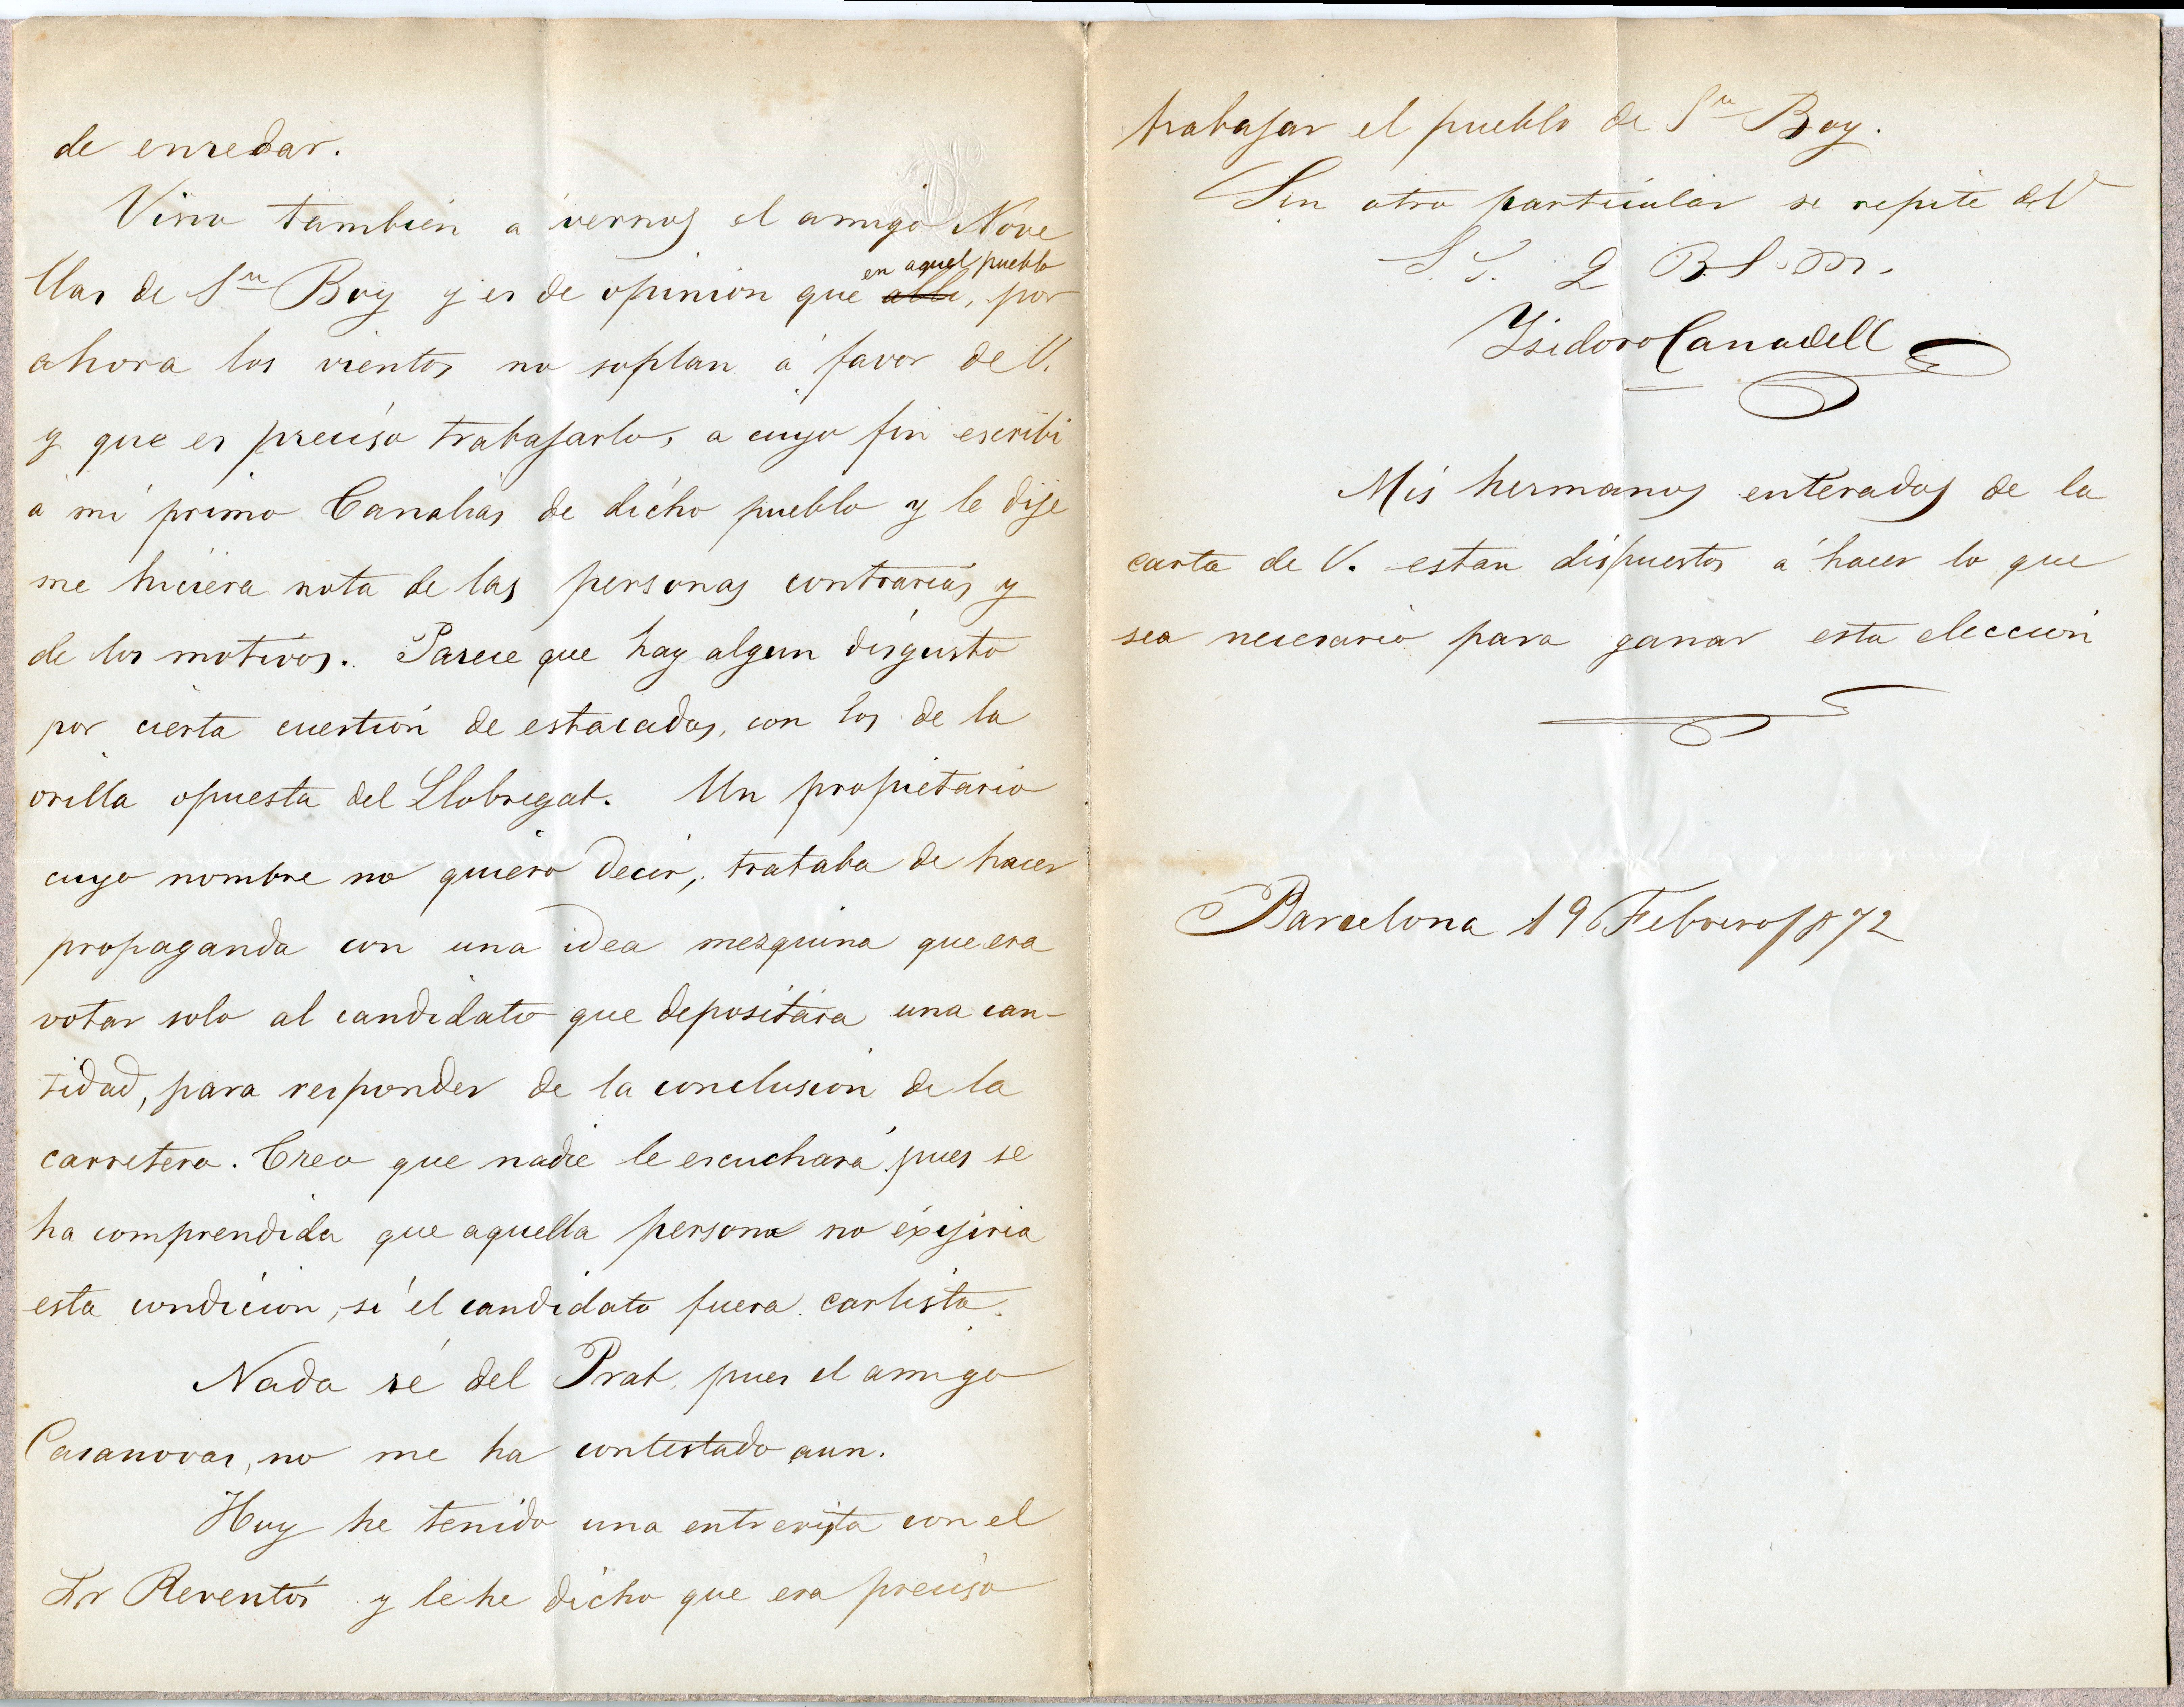 de enredar.
Vino también a vernos el amigo Nove
llas de Sn Boy y es de opinion que alli, por
en aquel pueblo
ahora los vientos no soplan á favor de V.
y que es preciso trabajarlo, a cuyo fin escribi
á mi primo Canalias de dicho pueblo y le dije
me hiciera nota de las personas contrarias y
de los motivos. Parece que hay algun disgusto
por cierta cuestión de estacadas, con los de la
orilla opuesta del Llobregat. Un propietario
cuyo nombre no quiero decir, trataba de hacer
propaganda con una idea mezquina que era
votar solo al candidato que depositára una can-
tidad, para responder de la conclusion de la
carretera. Creo que nadie le escuchará pues se
ha comprendido que aquella persona no éxijiria
esta condicion, si el candidato fuera carlista.
Nada sé del Prat, pues el amigo
Casanovas, no me ha contestado aun.
Hoy he tenido una entrevista con el
Sr Reventós y le he dicho que era preciso
trabajar el pueblo de Sn Boy.
Sin otro particular se repite de V
S. S. Q B S. M.
Isidoro Canadell
Mis hermanos enterados de la
carta de V. estan dispuestos á hacer lo que
sea necesario para ganar esta eleccion
Barcelona 19 Febrero/872